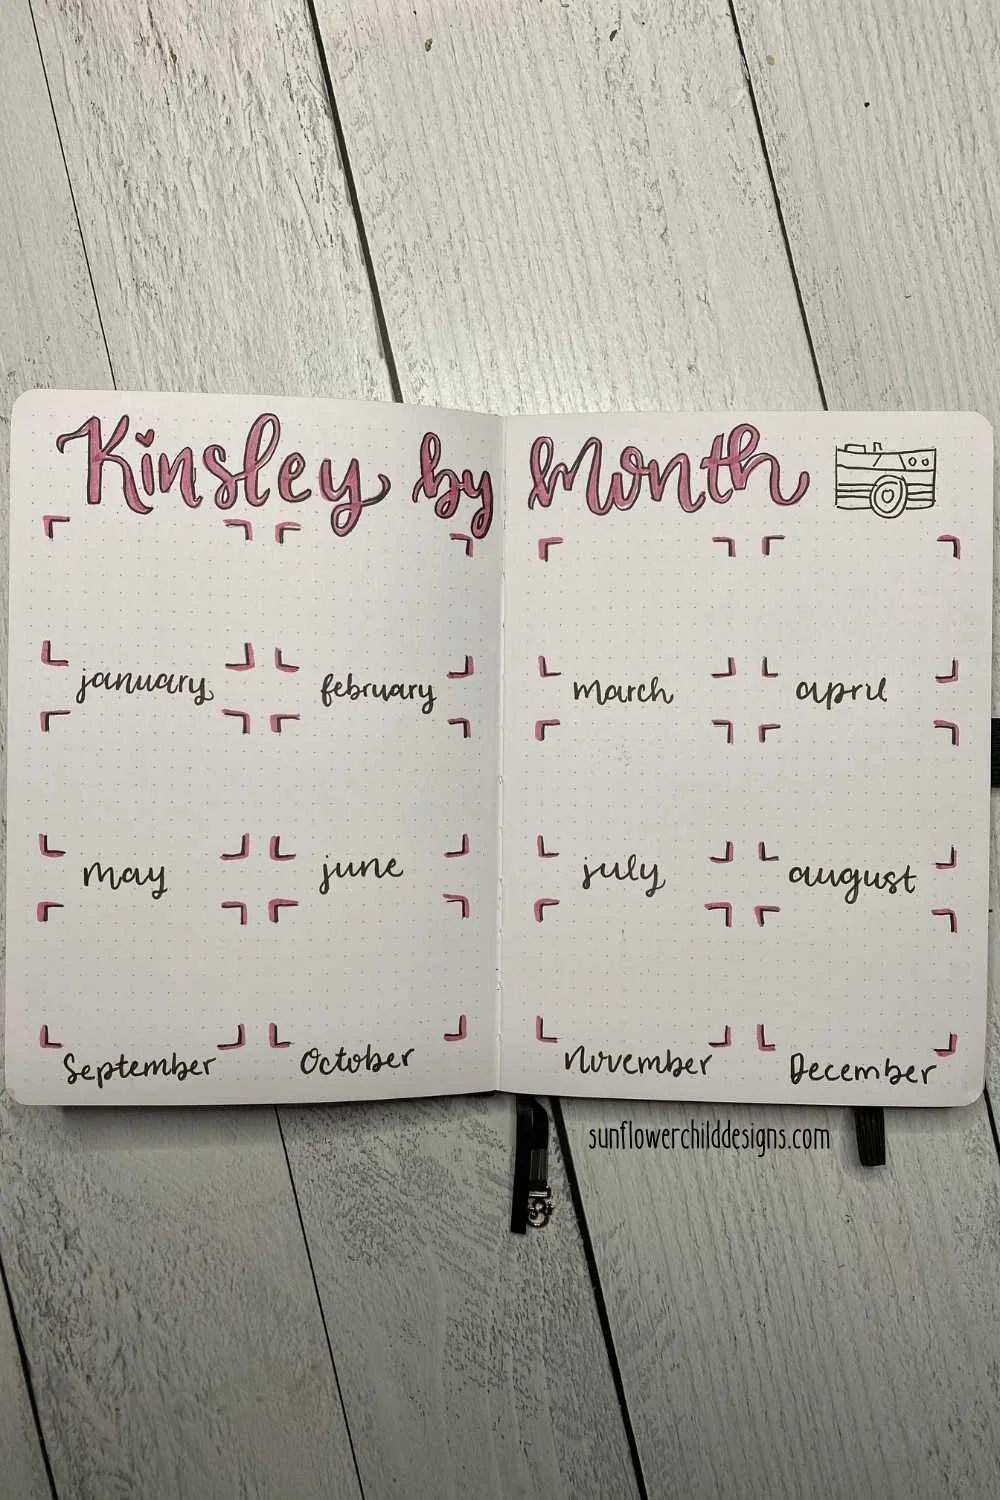 Kinsley by Month
january february march april
may june july august
September October November December
sunflowerchilddesigns.com